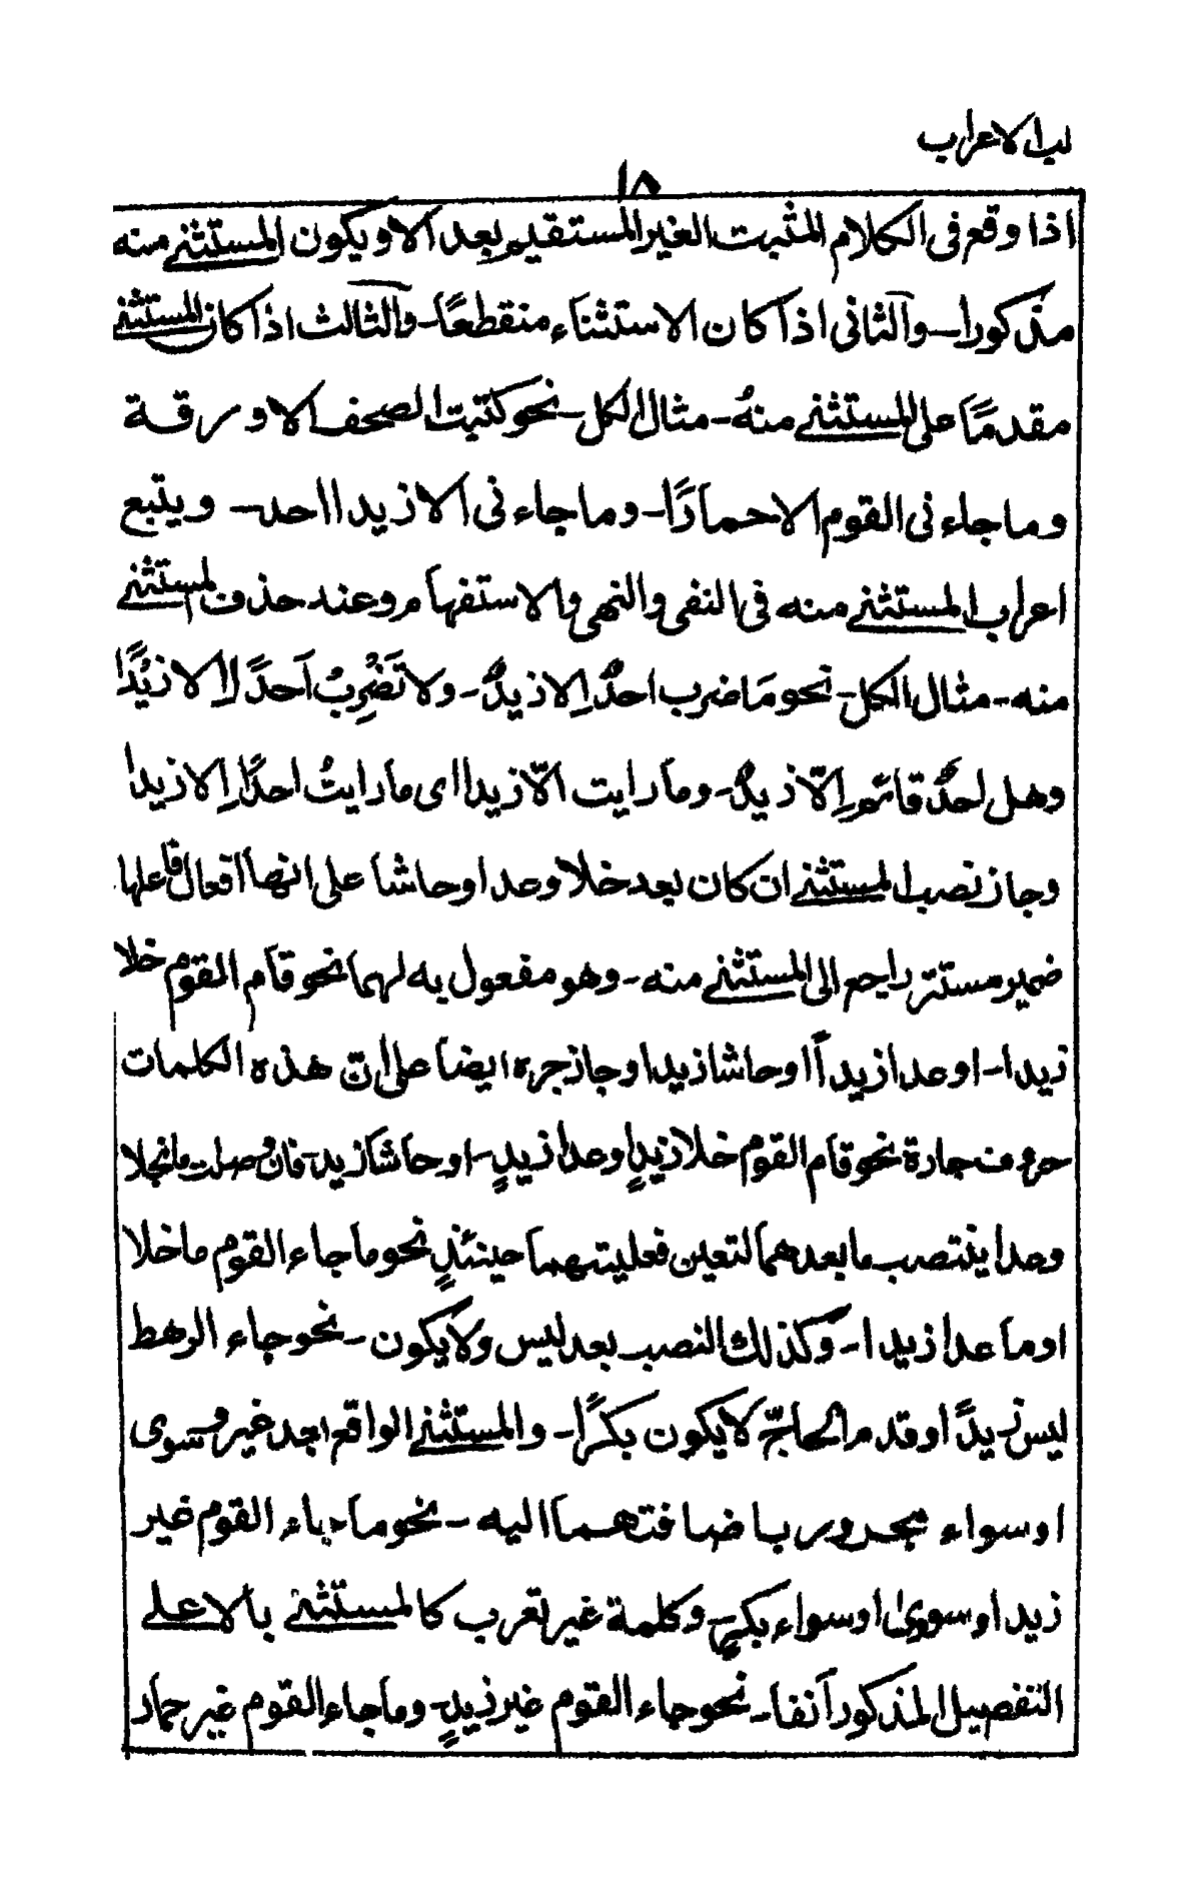 لب الاعراب
١٨
اذا وقع فى الكلام المثبت الغير المستقيم بعد الا ويكون المستثنى منه
مذكورا - والثانى اذا كان الاستثناء منقطعًا - والثالث اذا كان المستثنى
مقدمًا على المستثنى منهُ - مثال الكل - نحو كتبت الصحف الا ورقة
وما جاء نى القوم الا حمارًا - وما جاء نى الا زيدا احد - ويتبع
اعراب المستثنى منه فى النفى والنهى والاستفهام وعند حذف المستثنى
منه - مثال الكل - نحو مَا ضرب احدٌ اِلا زيدٌ - ولا تَضْرِبُ اَحدًا اِلا زيدًا
وهل احدٌ قائم اِلّا زيدٌ - وما رايت الّا زيدا اى ما رايتُ احدًا اِلا زيدا
وجاز نصب المستثنى ان كان بعد خلا وعدا وحاشا على انها افعال فاعلها
ضمير مستتر راجع الى المستثنى منه - وهو مفعول به لهما نحو قام القوم خلا
زيدا - او عدا زيداً او حاشا زيدا وجاز جره ايضا على ان هذه الكلمات
حروف جارة نحو قام القوم خلا زيدٍ او عدا زيدٍ - او حاشا زيد - فان وصلت ما بخلا
وعدا ينتصب ما بعدهما لتعين فعليتهما حينئذٍ نحو ما جاء القوم ما خلا
او ما عدا زيدا - وكذلك النصب بعد ليس ولا يكون - نحو جاء الرهط
ليس زيدًا او قدم الحاجّ لا يكون بكرًا - والمستثنى الواقع بعد غير وسوى
او سواء مجرور باضافتهما اليه - نحو ما جاء القوم غير
زيد او سوىٰ او سواء بكرٍ - وكلمة غير تعرب كالمستثنى بالا على
التفصيل المذكور آنفا - نحو جاء القوم غير زيدٍ - وما جاء القوم غير حمار